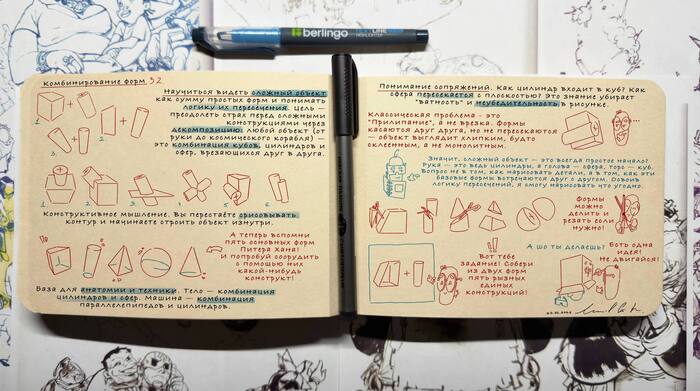 berlingo
TEXTLINE
HIGHLIGHTER
Комбинирование форм 32
Научиться видеть сложный объект
как сумму простых форм и понимать
логику их пересечения. Цель —
преодолеть страх перед сложными
конструкциями через
декомпозицию: любой объект (от
руки до космического корабля) —
это комбинация кубов, цилиндров и
сфер, врезающихся друг в друга.
1.
2.
3.
1. 2. 3. 4. 5. 6.
Конструктивное мышление. Вы перестаёте срисовывать
контур и начинаете строить объект изнутри.
А теперь вспомни
пять основных форм
Питера Хана!
И попробуй соорудить
с помощью них
какой-нибудь
конструкт!
База для анатомии и техники. Тело — комбинация
цилиндров и сфер. Машина — комбинация
параллелепипедов и цилиндров.
Понимание сопряжений. Как цилиндр входит в куб? Как
сфера пересекается с плоскостью? Это знание убирает
"ватность" и неубедительность в рисунке.
Классическая проблема — это
"прилипание", а не врезка. Формы
касаются друг друга, но не пересекаются
— объект выглядит хлипким, будто
склеенным, а не монолитным.
Значит, сложный объект — это всегда простое начало?
Рука — это ведь цилиндры, а голова — сфера, торс — куб.
Вопрос не в том, как нарисовать детали, а в том, как эти
базовые формы встречаются друг с другом. Освоив
логику пересечений, я смогу нарисовать что угодно.
Формы
можно
делить и
резать если
нужно!
Вот тебе
задание! Собери
из двух форм
пять разных
единых
конструкций!
А шо ты делаешь?
Есть одна
идея!
Не двигайся!